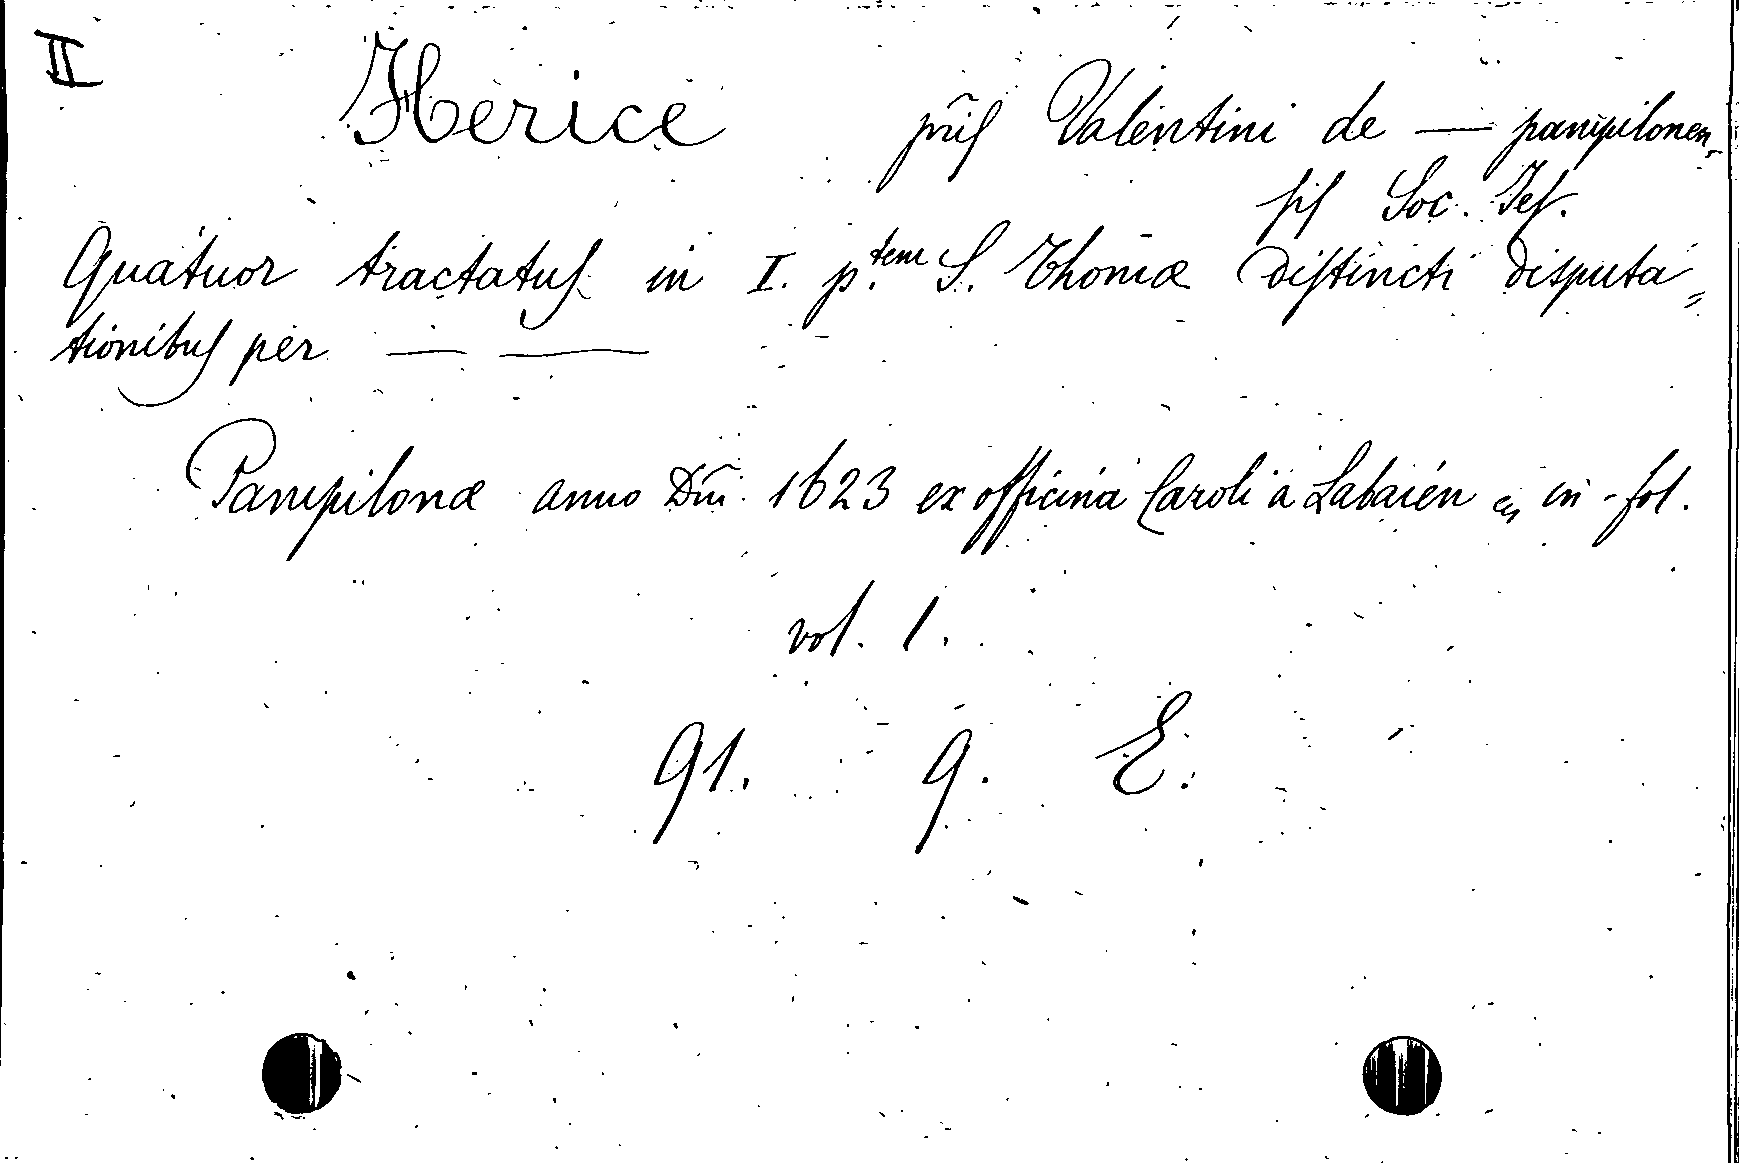 II
Herice pris̃ Valentini de — pampilonen,
sis Soc. Jes.
Quatuor tractatus in I. p.tem S. Thomæ distincti disputa=
tionibus per — —
Pampilonæ anno Dm̃ 1623 ex officina Caroli à Labaién in-fol.
vol. 1.
91. 9. E.